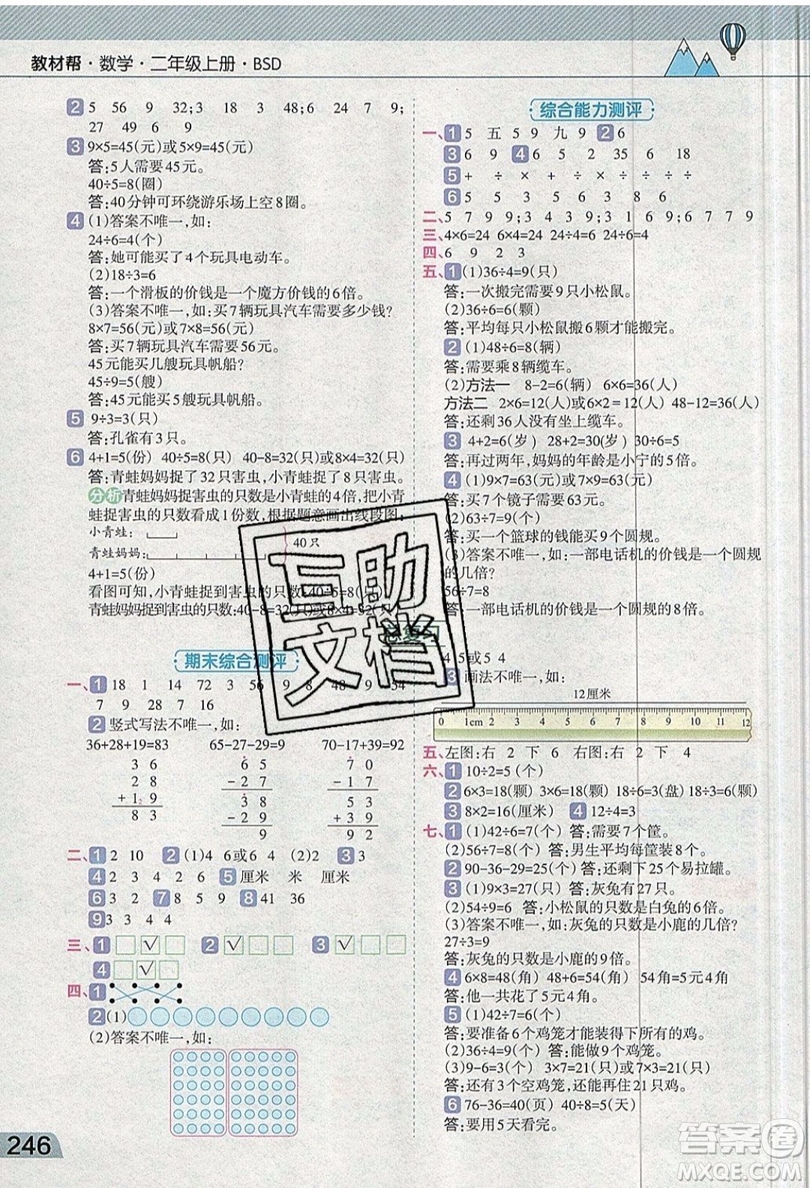 教材帮·数学·二年级上册·BSD
2 5 56 9 32;3 18 3 48;6 24 7 9;
27 49 9 66
3 9×5=45(元)或5×9=45(元)
答:5人需要45元。
40÷5=8(圈)
答:40分钟可环绕游乐场上空8圈。
4 (1)答案不唯一,如:
24÷6=4(个)
答:她可能买了4个玩具电动车。
(2)18÷3=6
答:一个滑板的价钱是一个魔方价钱的6倍。
(3)答案不唯一,如:买7辆玩具汽车需要多少钱?
8×7=56(元)或7×8=56(元)
答:买7辆玩具汽车需要56元。
45元能买几艘玩具帆船?
45÷9=5(艘)
答:45元能买5艘玩具帆船。
5 9÷3=3(只)
答:孔雀有3只。
6 4+1=5(份) 40÷5=8(只) 40-8=32(只)或8×4=32(只)
答:青蛙妈妈捉了32只害虫,小青蛙捉了8只害虫。
分析 青蛙妈妈捉害虫的只数是小青蛙的4倍,把小青
蛙捉害虫的只数看成1份数,根据题意画出线段图:
小青蛙:
青蛙妈妈: 40只
4+1=5(份)
看图可知,小青蛙捉到害虫的只数:40÷5=8(只)
青蛙妈妈捉到害虫的只数:40-8=32(只)或8×4=32(只)
期末综合测评
一、1 18 1 14 72 3 56 9 8 9 54
7 9 28 7 16
2 竖式写法不唯一,如:
36+28+19=83 65-27-29=9 70-17+39=92
3 6 6 5 7 0
2 8 -2 7 -1 7
+1 9 3 8 5 3
8 3 -2 9 +3 9
9 9 2
二、1 2 10 2 (1)4 6或6 4 (2)2 3 3
4 4 2 2 4 5 厘米 米 厘米
6 3 2 7 8 8 41 36
9 3 3 4 4
三、1 □☑□ 2 □☑□ 3 ☑□□
4 ☑□□
四、1
2 (1)
(2)答案不唯一,如:
246
综合能力测评
一、1 5 五 5 9 九 9 2 6
3 6 9 4 6 5 2 35 6 18
5 + ÷ × ÷ × ÷ ÷ ÷
6 5 5 6 3 8 6
二、5 7 9 9;3 4 3 9;7 9 9 9
三、4×6=24 6×4=24 24÷4=6 24÷6=4
四、6 9 2 3
五、1 (1)36÷4=9(只)
答:一次搬完需要9只小松鼠。
(2)36÷6=6(颗)
答:平均每只小松鼠搬6颗才能搬完。
2 (1)48÷6=8(辆)
答:需要乘8辆缆车。
(2)方法一 8-2=6(辆) 6×6=36(人)
方法二 2×6=12(人)或6×2=12(人) 48-12=36(人)
答:还剩36人没有坐上缆车。
3 4+2=6(岁) 28+2=30(岁) 30÷6=5
答:再过两年,妈妈的年龄是小宁的5倍。
答:买7个镜子需要63元。
答:买一个篮球的钱能买9个圆规。
(3)答案不唯一,如:一部电话机的价钱是一个圆规
的几倍?
答:一部电话机的价钱是一个圆规的8倍。
4 5或5 4
画法不唯一,如:
12厘米
0 1cm 2 3 4 5 6 7 8 9 10 11 12
五、左图:右 2 下 6 右图:右 2 下 4
六、1 10÷2=5(个)
2 6×3=18(颗) 3×6=18(颗) 18÷6=3(盘) 18÷3=6(颗)
3 8×2=16(厘米) 4 12÷4=3
七、1 (1)42÷6=7(个) 答:需要7个筐。
(2)56÷7=8(个) 答:男生平均每筐装8个。
2 90-36-29=25(个) 答:还剩下25个易拉罐。
3 (1)42÷7=6(只) 答:灰兔有6只。
(2)54÷9=6 答:小松鼠的只数是白兔的6倍。
(3)答案不唯一,如:灰兔的只数是小鹿的几倍?
27÷3=9
答:灰兔的只数是小鹿的9倍。
4 6×8=48(角) 48+6=54(角) 54角=5元4角
答:他一共花了5元4角。
5 (1)42÷7=6(个)
答:要准备6个鸡笼才能装得下所有的鸡。
(2)36÷4=9(个) 答:能做9个鸡笼。
(3)9-6=3(个) 3×7=21(只)或7×3=21(只)
答:还剩3个空鸡笼,还能装21只鸡。
6 76-36=40(页) 40÷8=5(天)
答:要用5天看完。
互助
文档
答案圈
MXQE.COM